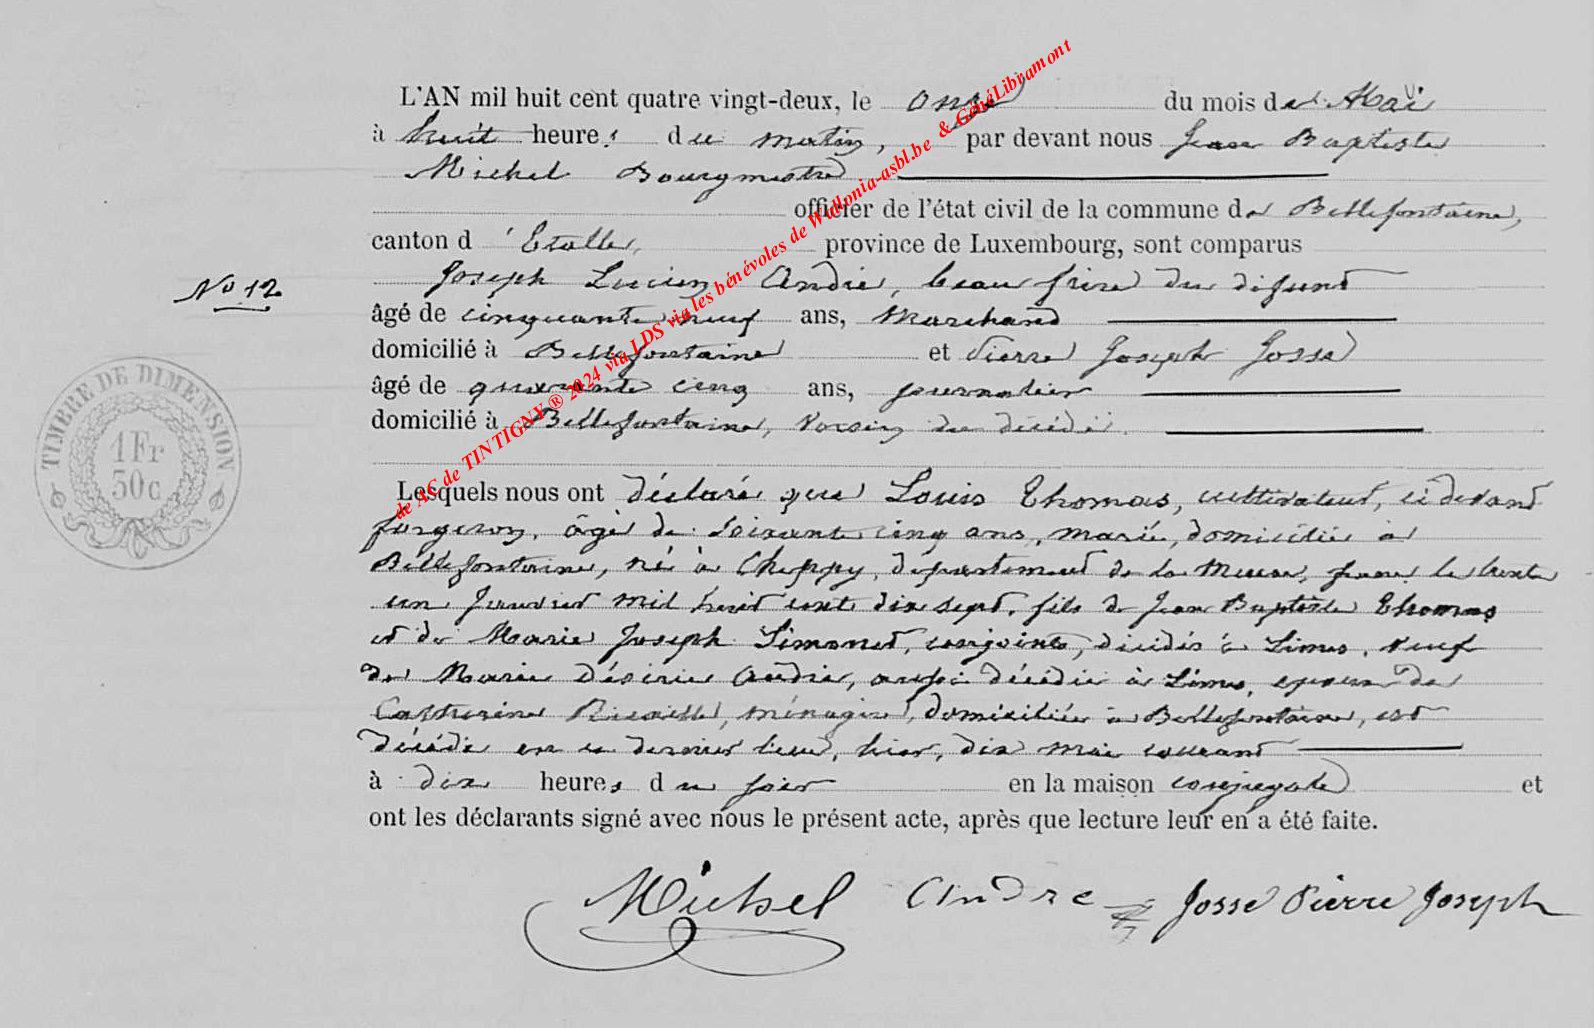 L'AN mil huit cent quatre vingt-deux, le onze du mois de Mai
à huit heures du matin, par devant nous Jean Baptiste
Michel Bourgmestre
officier de l'état civil de la commune de Bellefontaine,
canton d'Etalle, province de Luxembourg, sont comparus
No 12
Joseph Lucien André, beau frère du défunt
âgé de cinquante neuf ans, Marchand
domicilié à Bellefontaine et Pierre Joseph Josse
âgé de quarante cinq ans, journalier
domicilié à Bellefontaine, voisin du décédé.
TIMBRE DE DIMENSION
1 Fr
50 c
Lesquels nous ont déclaré que Louis Thomas, cultivateur, ci devant
forgeron, âgé de soixante cinq ans, marié, domicilié à
Bellefontaine, né à Cheppy, département de la Meuse, le trente
un Janvier mil huit cent dix sept, fils de Jean Baptiste Thomas
et de Marie Joseph Simonet, conjoints, décédés à Limes, veuf
de Marie Désirée André, aussi décédée à Limes, époux de
Catherine ménagère, domiciliée à Bellefontaine, est
décédé en ce dernier lieu, hier, dix mai courant
à dix heures du soir en la maison conjugale et
ont les déclarants signé avec nous le présent acte, après que lecture leur en a été faite.
Michel André Josse Pierre Joseph
de AC de TINTIGNY ® 2024 via LDS via les bénévoles de Wallonia-asbl.be & GénéLibramont